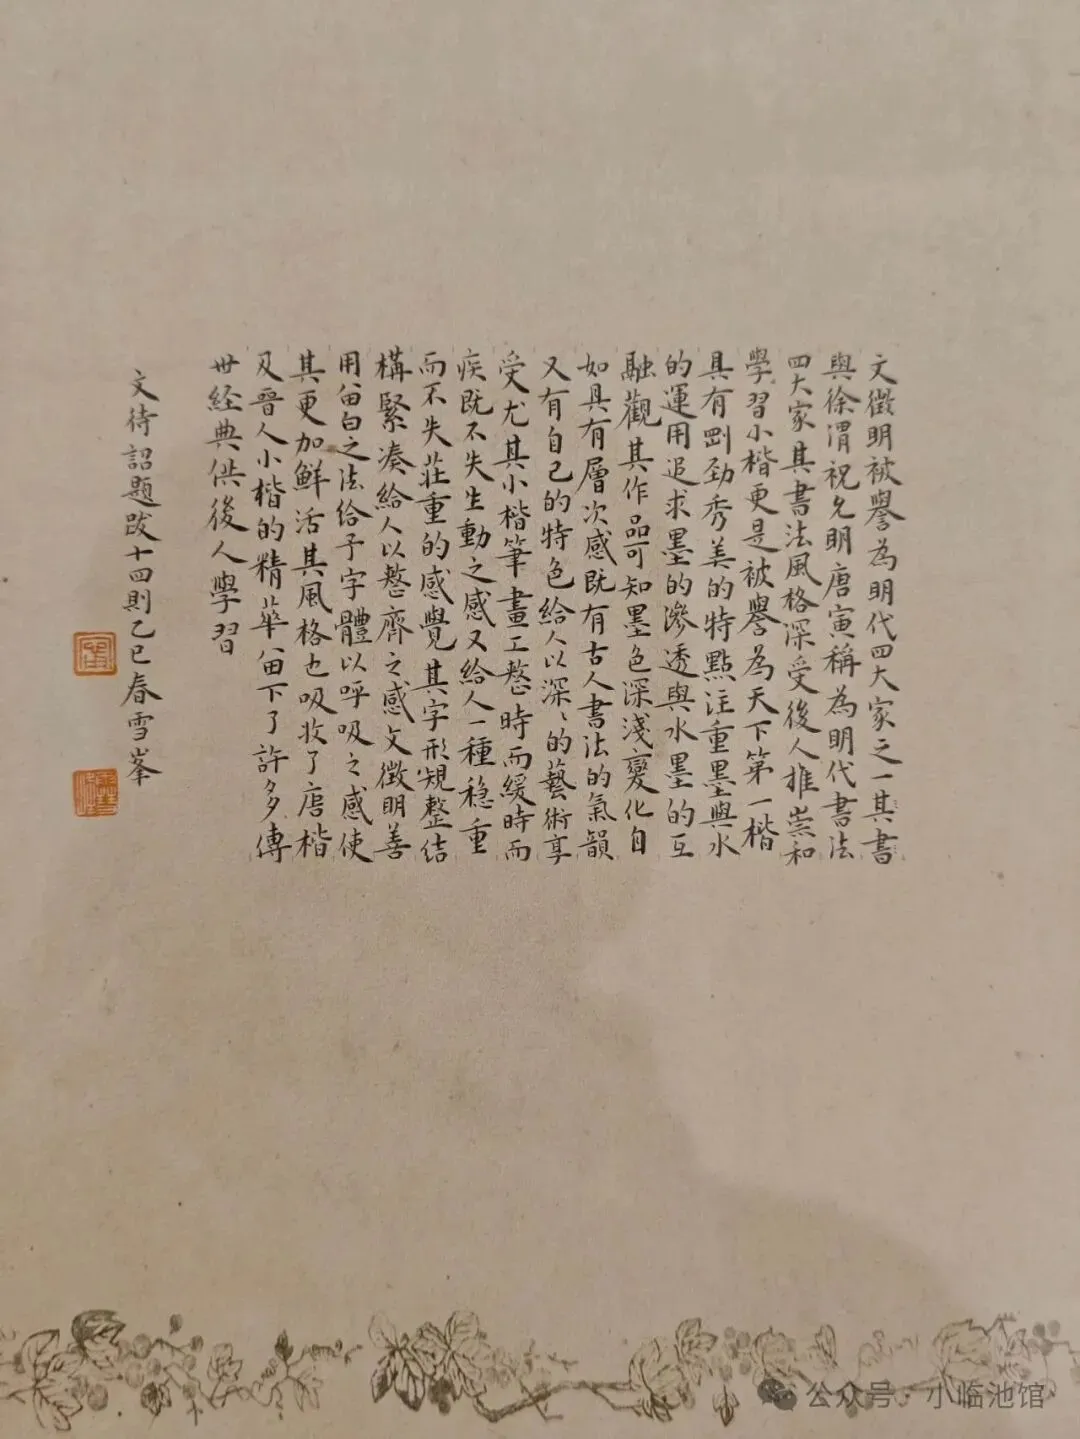 文徵明被譽為明代四大家之一其書
與徐渭祝允明唐寅稱為明代書法
四大家其書法風格深受後人推崇和
學習小楷更是被譽為天下第一楷
具有剛勁秀美的特點注重墨與水
的運用追求墨的滲透與水墨的互
融觀其作品可知墨色深淺變化自
如具有層次感既有古人書法的氣韻
又有自己的特色給人以深〻的藝術享
受尤其小楷筆畫工整時而緩時而
疾既不失生動之感又給人一種穩重
而不失莊重的感覺其字形規整結
構緊湊給人以整齊之感文徵明善
用留白之法給予字體以呼吸之感使
其更加鮮活其風格也吸收了唐楷
及晉人小楷的精華留下了許多傳
世經典供後人學習
文待詔題跋十四則乙巳春雪峯
公众号·小临池馆